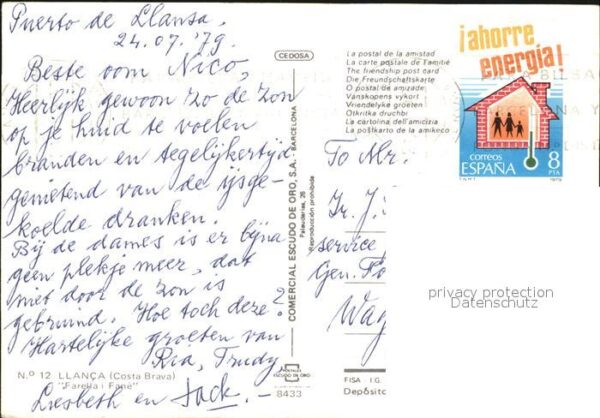 Puerto de Llansa.
24.07.'79.
Beste oom Nico,
Heerlijk gewoon zo de zon
op je huid te voelen
branden en tegelijkertijd
genietend van de ijsge-
koelde dranken.
Bij de dames is er bijna
geen plekje meer, dat
niet door de zon is
gebruind. Hoe toch deze?
Hartelijke groeten van
Ria, Trudy,
Liesbeth en Jack.-
N.º 12 LLANÇA (Costa Brava)
"Farella i Fané"
CEDOSA
COMERCIAL ESCUDO DE ORO, S.A. BARCELONA
Palaudarias, 26
Reproducción prohibida
ESCUDO DE ORO
8433
La postal de la amistad
La carte postale de l'amitié
The friendship post card
Die Freundschaftskarte
O postal de amizade
Vanskopens vykort
Vriendelyke groeten
Otkritka druchbi
La cartolina dell'amicizia
La poŝtkarto de la amikeco
¡ahorre
energía!
correos
ESPAÑA
8
PTA
F.N.M.T.
1979
To Mr.
Ir. J.
service
Gen. Fo
Wag
FISA I.G.
Depósito
privacy protection
Datenschutz